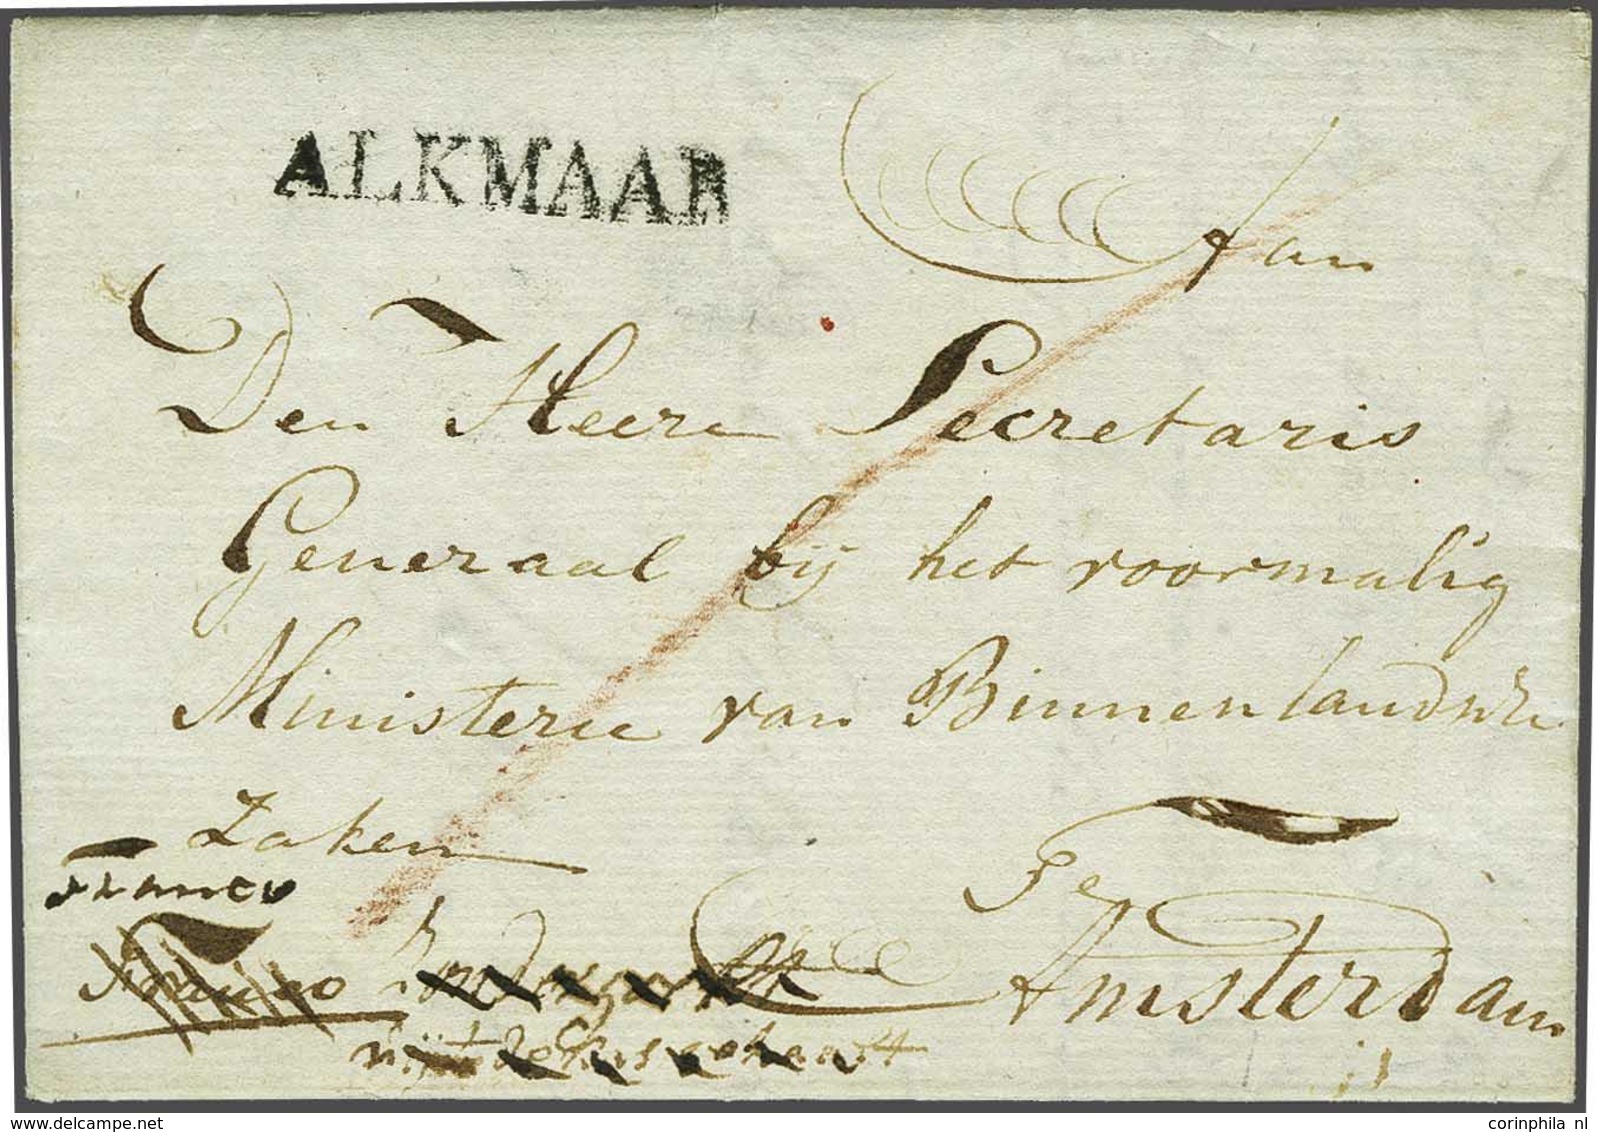 ALKMAAR
Aan
Den Heere Secretaris
Generaal bij het voormalig
Ministerie van Binnenlandsche
Zaken
Franco
Te
Amsterdam
www.delcampe.net
corinphila nl